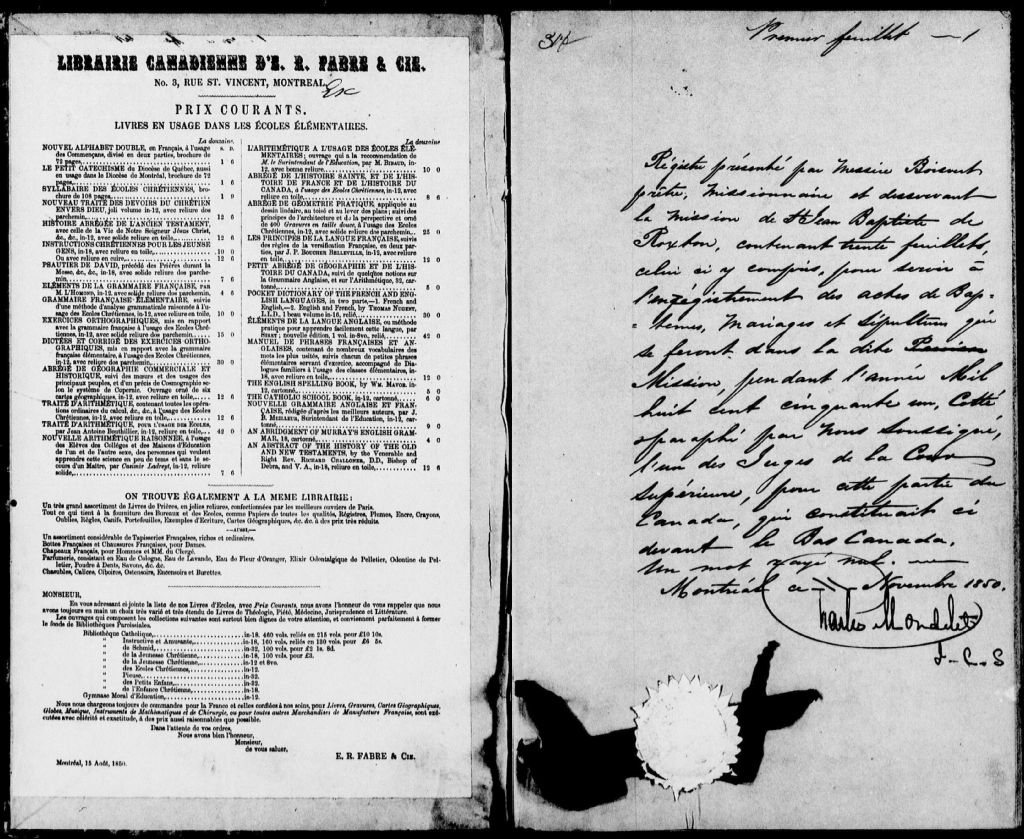 LIBRAIRIE CANADIENNE D'E. R. FABRE & CIE.
No. 3, RUE ST. VINCENT, MONTREAL.
PRIX COURANTS.
LIVRES EN USAGE DANS LES ÉCOLES ÉLÉMENTAIRES.
La douzaine.
S. D.
NOUVEL ALPHABET DOUBLE, en Français, à l'usage
des Commençans, divisé en deux parties, brochure de
72 pages, 1 6
LE PETIT CATECHISME du Diocèse de Québec, aussi
en usage dans le Diocèse de Montréal, brochure de 72
pages, 1 6
SYLLABAIRE DES ÉCOLES CHRÉTIENNES, bro-
chure de 108 pages, 1 9
NOUVEAU TRAITÉ DES DEVOIRS DU CHRÉTIEN
ENVERS DIEU, joli volume in-12, avec reliure dos
parchemin, 12 6
HISTOIRE ABRÉGÉE DE L'ANCIEN TESTAMENT,
avec celle de la Vie de Notre Seigneur Jésus Christ,
&c., &c., in-12, avec solide reliure en toile, 12 6
INSTRUCTIONS CHRÉTIENNES POUR LES JEUNSE
GENS, in-18, avec reliure en toile, 10 0
Ou avec reliure en cuire, 12 6
PSAUTIER DE DAVID, précédé des Prières durant la
Messe, &c., &c., in-18, avec solide reliure dos parche-
min, 7 6
ELÉMENTS DE LA GRAMMAIRE FRANÇAISE, par
M. L'HOMOND, in-12, avec solide reliure dos parchemin, 4 6
GRAMMAIRE FRANÇAISE ÉLÉMENTAIRE, suivie
d'une méthode d'analyse grammaticale raisonnée à l'u-
sage des Écoles Chrétiennes, in-12, avec reliure en toile, 10 0
EXERCICES ORTHOGRAPHIQUES, mis en rapport
avec la grammaire française à l'usage des Ecoles Chré-
tiennes, in-12, avec solide reliure dos parchemin, 15 0
DICTÉES ET CORRIGÉ DES EXERCICES ORTHO-
GRAPHIQUES, mis en rapport avec la grammaire
française élémentaire, à l'usage des Ecoles Chrétiennes,
in-12, avec reliure dos parchemin, 30 0
ABRÉGÉ DE GÉOGRAPHIE COMMERCIALE ET
HISTORIQUE, suivi des mœurs et des usages des
principaux peuples, et d'un précis de Cosmographie se-
lon le système de Copernic. Ouvrage orné de six
cartes géographiques, in-12, avec reliure en toile, 12 6
TRAITÉ D'ARITHMÉTIQUE, contenant toutes les opéra-
tions ordinaires du calcul, &c., &c., à l'usage des Ecoles
Chrétiennes, in-12, avec reliure en toile, 12 6
TRAITÉ D'ARITHMÉTIQUE, POUR L'USAGE DES ECOLES,
par Jean Antoine Bouthillier, in-12, reliure en toile, 42 0
NOUVELLE ARITHMÉTIQUE RAISONNÉE, à l'usage
des Elèves des Colléges et des Maisons d'Education
de l'un et de l'autre sexe, des personnes qui veulent
apprendre cette science en peu de tems et sans le se-
cours d'un Maître, par Casimir Ladreyt, in-12, reliure
solide, 7 6
La douzaine
L'ARITHMÉTIQUE A L'USAGE DES ÉCOLES ÉLÉ-
MENTAIRES; ouvrage qui a la recommendation de
M. le Surintendant de l'Education, par M. BIBAUD, in-
12, avec bonne reliure, 10 0
ABRÉGÉ DE L'HISTOIRE SAINTE, ET DE L'HIS-
TOIRE DE FRANCE ET DE L'HISTOIRE DU
CANADA, à l'usage des Ecoles Chrétiennes, in-12, avec
reliure en toile, 8 6
ABRÉGÉ DE GÉOMETRIE PRATIQUE, appliquée au
dessin linéaire, au toisé et au lever des plans; suivi des
principes de l'architecture et de la perspective et orné
de 400 Gravures en taille douce, à l'usage des Ecoles
Chrétiennes, in-12, avec solide reliure dos parchemin, 25 0
LES PRINCIPES DE LA LANGUE FRANÇAISE, suivis
des règles de la versification Française, en deux par-
ties, par J. F. BOUCHER BELLEVILLE, in-12, avec reliure
en toile, 12 0
PETIT ABRÉGÉ DE GÉOGRAPHIE ET DE L'HIS-
TOIRE DU CANADA, suivi de quelques notions sur
la Grammaire Anglaise, et sur l'Arithmétique, 32, car-
tonné, 5 0
POCKET DICTIONARY OF THE FRENCH AND EN-
GLISH LANGUAGES, in two parts,—1. French and
English,—2. English and French, by THOMAS NUGENT,
L.L.D., 1 beau volume in-16, relié, 30 0
ÉLÉMENTS DE LA LANGUE ANGLAISE, ou méthode
pratique pour apprendre facilement cette langue, par
SIRET; nouvelle édition, 1 vol. in-8vo. relié, 42 0
MANUEL DE PHRASES FRANÇAISES ET AN-
GLAISES, contenant de nombreux vocabulaires des
mots les plus usités, suivis chacun de petites phrases
élémentaires servant d'exercice, accompagné de Dia-
logues familiers à l'usage des classes élémentaires, in-
18, avec reliure en toile, 12 0
THE ENGLISH SPELLING BOOK, by WM. MAVOR. in
12, cartonné, 5 0
THE CATHOLIC SCHOOL BOOK, in-12, cartonné, 6 0
NOUVELLE GRAMMAIRE ANGLAISE ET FRAN-
ÇAISE, rédigée d'après les meilleurs auteurs, par J.
B. MEILLEUR, Surintendant de l'Education, in-12, car-
tonné, 9 0
AN ABRIDGMENT OF MURRAY'S ENGLISH GRAM-
MAR, 18, cartonné, 4 0
AN ABSTRACT OF THE HISTORY OF THE OLD
AND NEW TESTAMENTS, by the Venerable and
Right Rev. RICHARD CHALLONER, D.D., Bishop of
Debra, and V. A., in-18, reliure en toile, 12 6
ON TROUVE ÉGALEMENT A LA MEME LIBRAIRIE:
Un très grand assortiment de Livres de Prières, en jolies reliures, confectionnées par les meilleurs ouvriers de Paris.
Tout ce qui tient à la fourniture des Bureaux et des Ecoles, comme Papiers de toutes les qualités, Régistres, Plumes, Encre, Crayons,
Oublies, Règles, Canifs, Portefeuilles, Exemples d'Ecriture, Cartes Géographiques, &c. &c. à des prix très réduits.
—AUSSI,—
Un assortiment considérable de Tapisseries Françaises, riches et ordinaires.
Bottes Françaises et Chaussures Françaises, pour Dames.
Chapeaux Français, pour Hommes et MM. du Clergé.
Parfumerie, consistant en Eau de Cologne, Eau de Lavande, Eau de Fleur d'Oranger, Elixir Odontalgique de Pelletier, Odontine de Pel-
letier, Poudre à Dents, Savons, &c. &c.
Chasubles, Calices, Ciboires, Ostensoirs, Encensoirs et Burettes.
MONSIEUR,
En vous adressant ci-jointe la liste de nos Livres d'Ecoles, avec Prix Courants, nous avons l'honneur de vous rappeler que nous
avons toujours en main un choix très varié et très étendu de Livres de Théologie, Piété, Médecine, Jurisprudence et Littérature.
Les ouvrages qui composent les collections suivantes sont surtout bien dignes de votre attention, et conviennent parfaitement à former
le fonds de Bibliothèques Paroissiales.
Bibliothèque Catholique, in-18, 460 vols. reliés en 215 vols. pour £10 10s.
" Instructive et Amusante, in-18, 160 vols. reliés en 130 vols. pour £6 5s.
" de Schmid, in-32, 100 pour £2 1s. 8d.
" de la Jeunesse Chrétienne, in-18, 100 vols. pour £3.
" de la Jeunesse Chrétienne, in-12 et 8vo.
" des Ecoles Chrétiennes, in-12.
" Pieuse, in-32.
" des Petits Enfans, in-32.
" de l'Enfance Chrétienne, in-18.
Gymnase Moral d'Education, in-12.
Nous nous chargeons toujours de commandes pour la France et celles confiées à nos soins, pour Livres, Gravures, Cartes Géographiques,
Globes, Musique, Instruments de Mathématiques et de Chirurgie, ou pour toutes autres Marchandises de Manufacture Française, sont exé-
cutées avec célérité et exactitude, à des prix aussi raisonnables que possible.
Dans l'attente de vos ordres,
Nous avons bien l'honneur,
Monsieur,
de vous saluer,
E. R. FABRE & CIE.
Montréal, 15 Août, 1850.
Premier feuillet — 1
Régistre présenté par Messire Boisvert
prêtre, missionnaire et desservant
la mission de St Jean Baptiste de
Roxton, contenant trente feuillets,
celui ci y compris, pour servir à
l'enrégistrement des actes de Bap-
têmes, Mariages et Sépultures qui
se feront dans la dite
Mission, pendant l'année Mil
huit cent cinquante un, Cotté
& paraphé par Nous Soussigné,
l'un des Juges de la Cour
Supérieure, pour cette partie du
Canada, qui constituait ci
devant le Bas Canada.
Un mot rayé nul. —
Montréal ce Novembre 1850.
Charles Mondelet
J-C-S